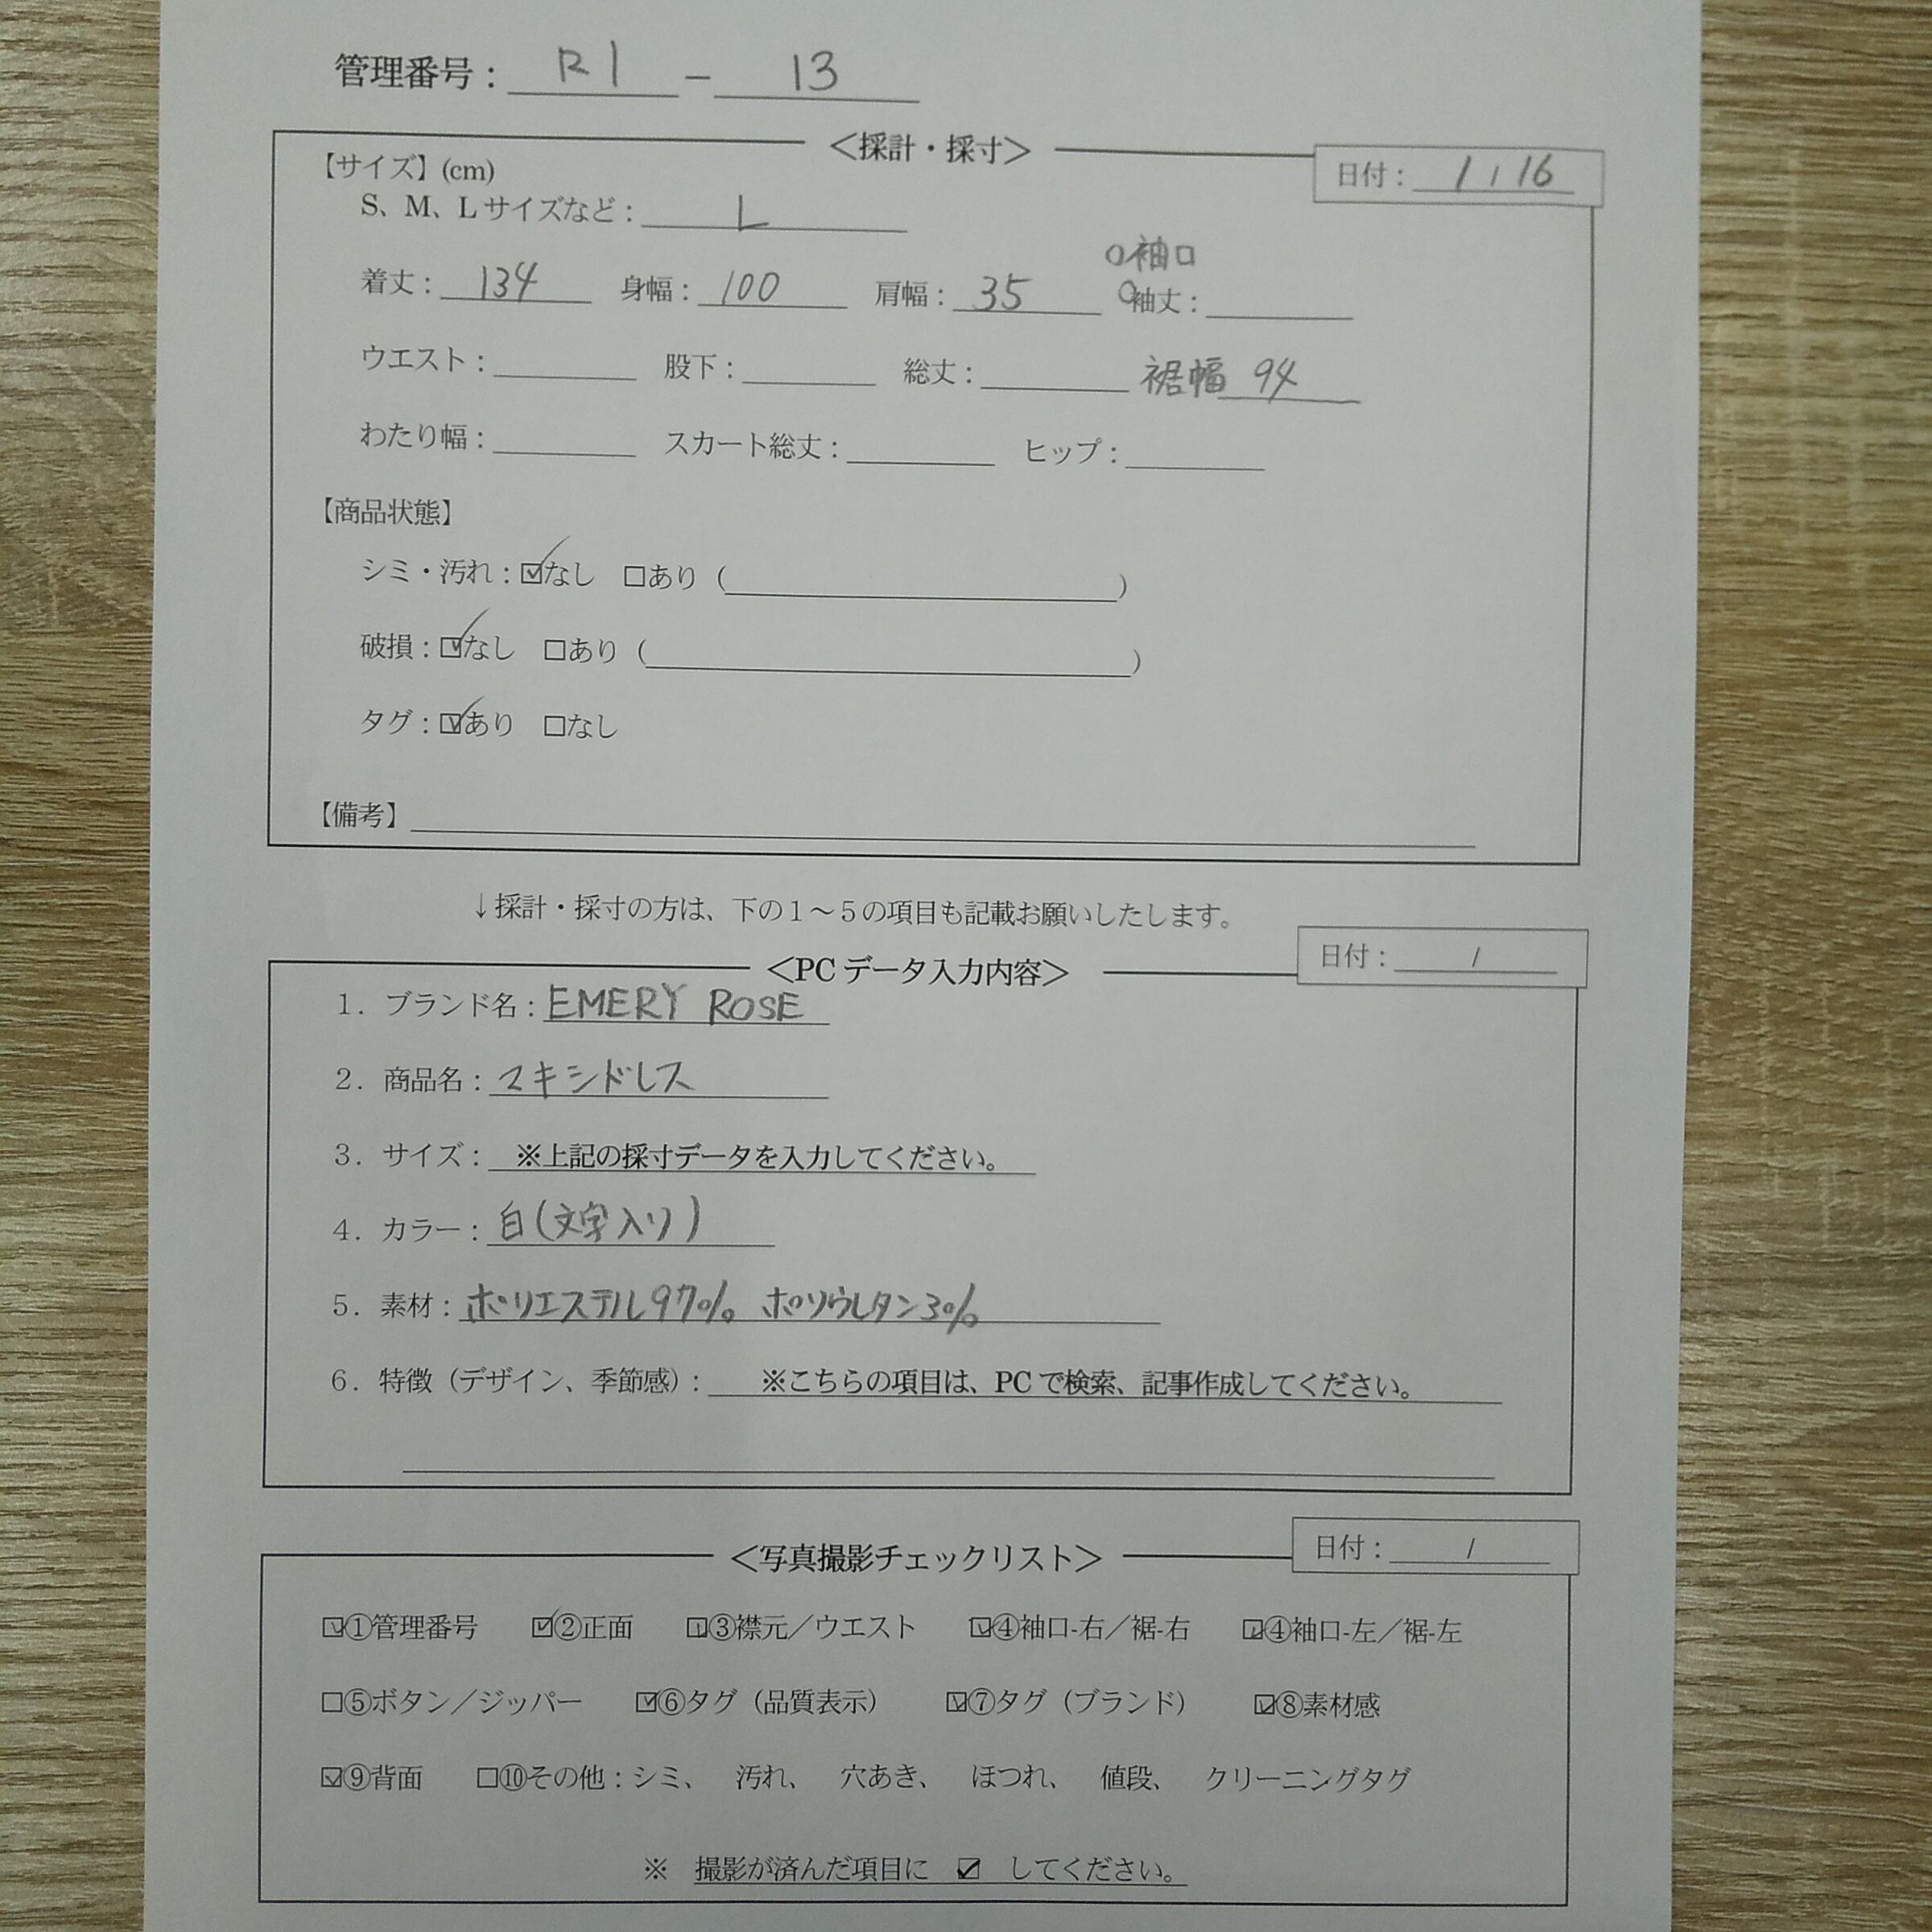 管理番号： R1 － 13
＜採計・採寸＞
日付： 1 / 16
【サイズ】(cm)
S、M、Lサイズなど： L
○袖口
着丈： 134 身幅： 100 肩幅： 35 ○袖丈：
ウエスト： 股下： 総丈： 裾幅 94
わたり幅： スカート総丈： ヒップ：
【商品状態】
シミ・汚れ：☑なし □あり（ ）
破損：☑なし □あり（ ）
タグ：☑あり □なし
【備考】
↓採計・採寸の方は、下の１～５の項目も記載お願いしたします。
＜PCデータ入力内容＞
日付： /
１．ブランド名：EMERY ROSE
２．商品名：マキシドレス
３．サイズ： ※上記の採寸データを入力してください。
４．カラー：白(文字入り)
５．素材：ポリエステル97% ポリウレタン3%
６．特徴（デザイン、季節感）： ※こちらの項目は、PCで検索、記事作成してください。
＜写真撮影チェックリスト＞
日付： /
☑①管理番号 ☑②正面 ☑③襟元／ウエスト ☑④袖口-右／裾-右 ☑④袖口-左／裾-左
□⑤ボタン／ジッパー ☑⑥タグ（品質表示） ☑⑦タグ（ブランド） ☑⑧素材感
☑⑨背面 □⑩その他：シミ、 汚れ、 穴あき、 ほつれ、 値段、 クリーニングタグ
※ 撮影が済んだ項目に ☑ してください。